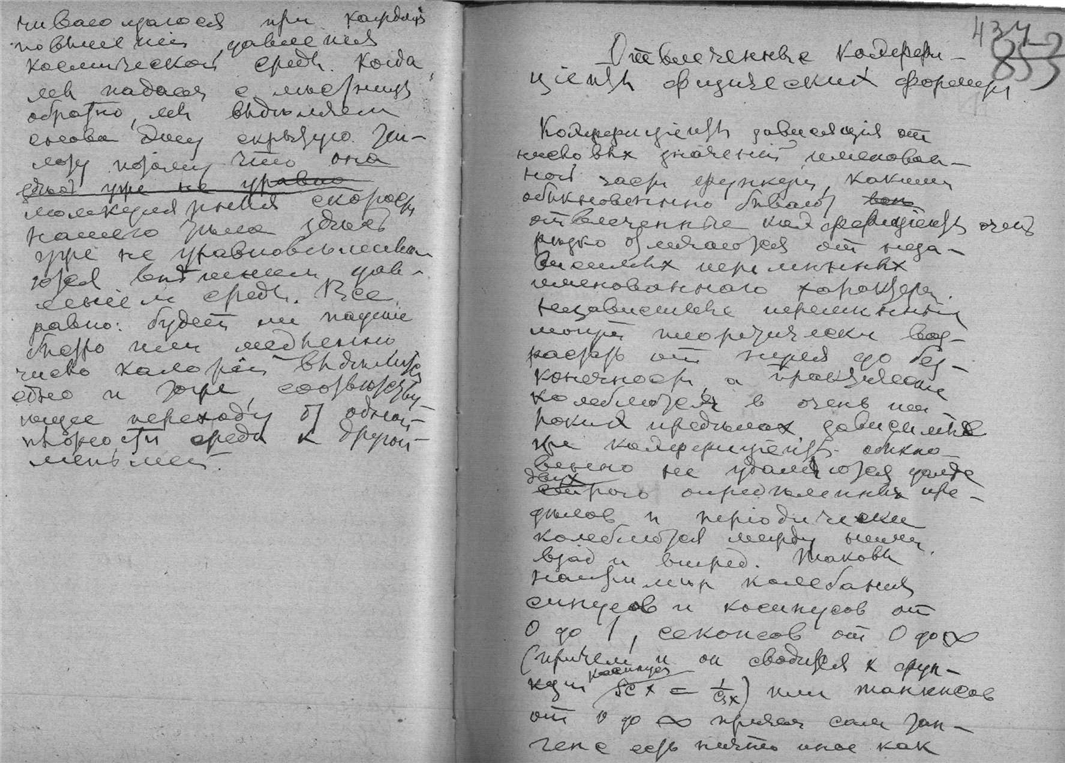 чивающагося при каждом
повышении давления
космической среды. Когда
лед падает с
обратно, лед выделяет
снова эту скрытую
потому что она
здесь уже не уравно
молекулярныя скорости
нашего тела здесь
уже не уравновешива
ются внешним дав-
лением среды. Все
равно: будет ли падение
быстро или медленно
число калорий выделится
одно и тоже, соответству
ющее переходу от одной
плотности среды к другой
меньшей.
437
853
Отвлеченные коэффи-
циенты физических формул
Коэффициенты зависящия от
числовых значений именован-
ной части функции, какими
обыкновенно бывают
отвлеченные коэффициенты очень
редко отличаются от неза-
висимых переменных
именованного характера.
Независимыя переменныя
могут теоретически воз-
растать от нуля до без-
конечности, а практически
колеблются в очень ши
роких пределах зависимые
же коэффициенты обыкно-
венно не удаляются далее
двух
строго определенных пре-
делов и периодически
колеблются между ними
взад и вперед. Таковы
например колебания
синусов и косинусов от
0 до 1, секансов от 0 до ∞
(причем и он сводится к функ-
косинуса
ции Sc x = 1/Cs x) или тангенсов
от 0 до ∞ причем сам тан-
генс есть ничто иное как